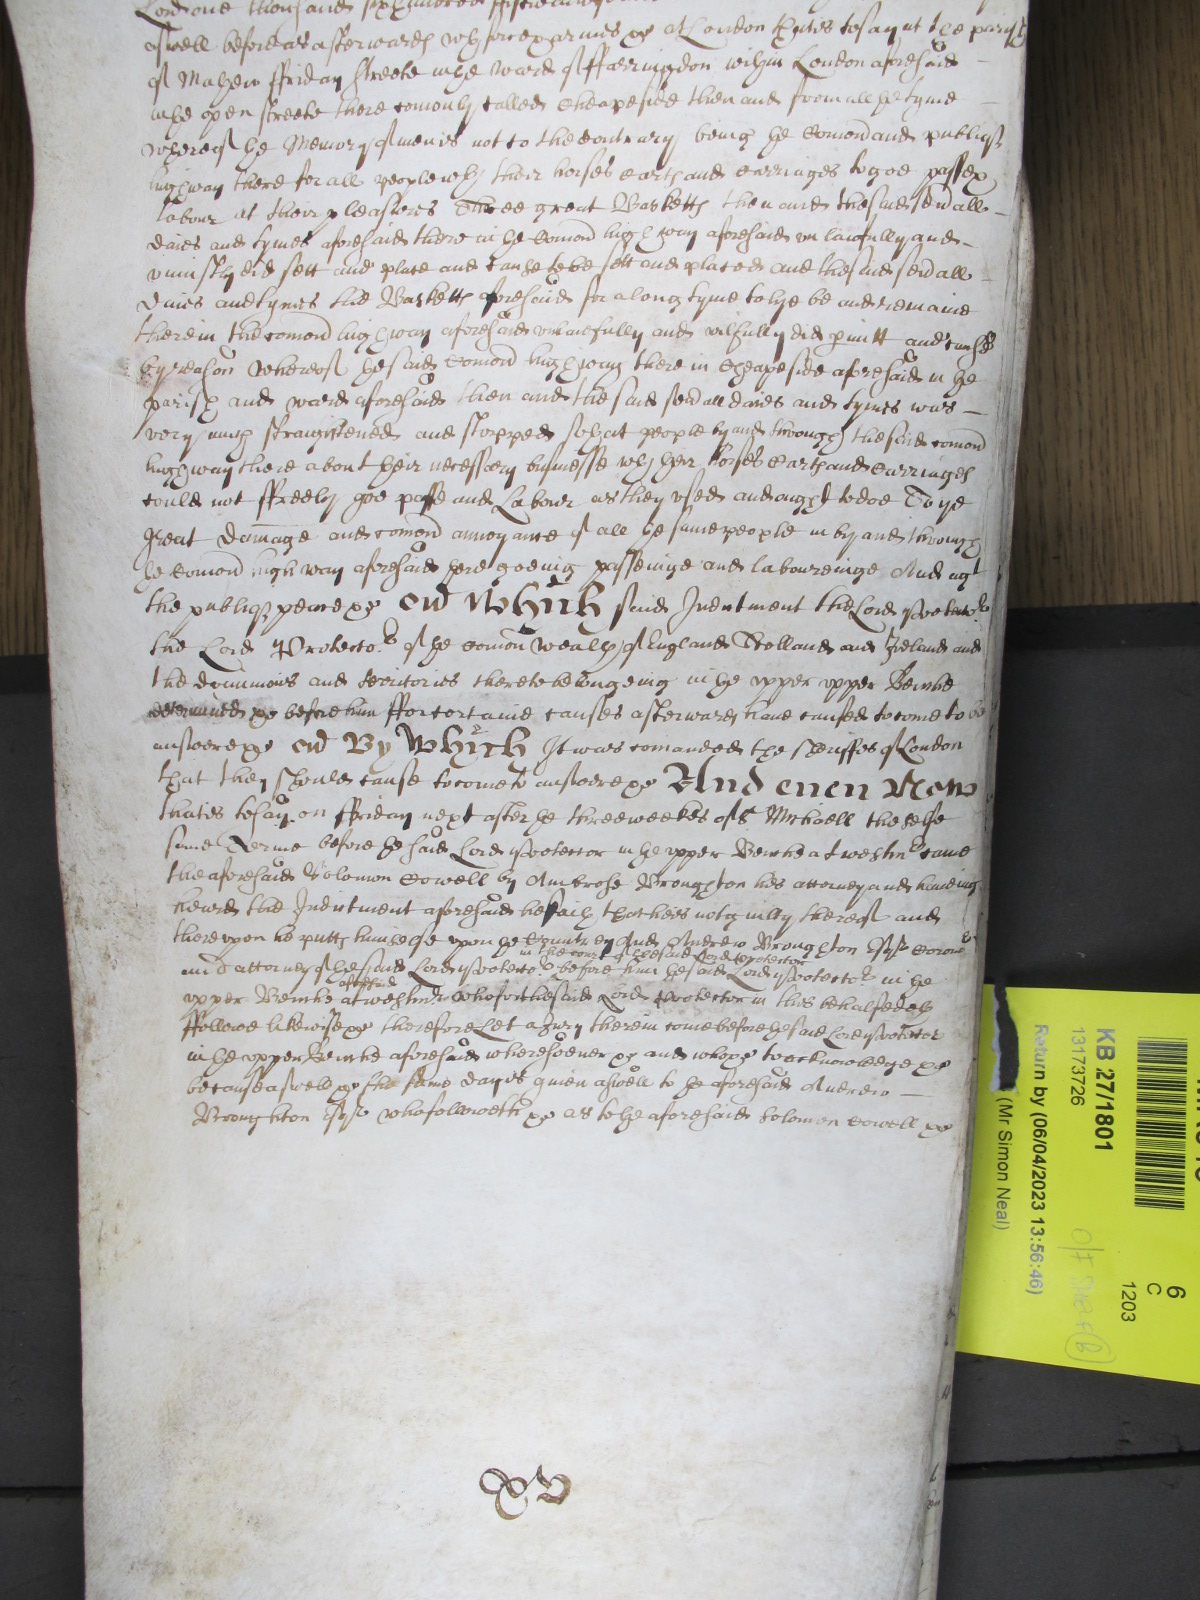 Lord one thousand six hundred fiftie and
aswell before as afterwards wth force & armes &c at London that is to say at the parish
of Mathew ffriday streete in the ward of ffarringdon within London aforesaid
in the open streete there comonly called Cheapeside then and from all the tyme
whereof the Memory of men is not to the contrary being the Comon and publiq
highway there for all people wth their horses carts and carriages to goe passe &
labour at their pleasures Three great Basketts then and the said sevall
daies and tymes aforesaid there in the Comon high way aforesaid unlawfully and
uniustly did sett and place and cause to be sett and placed and the said sevall
daies and tymes the Basketts aforesaid for a long tyme to lye be and remaine
there in the comon high way aforesaid unlawfully and wilfully did pmitt and cause
by reason whereof the said Comon high way there in Cheapeside aforesaid in the
parish and ward aforesaid then and the said sevall daies and tymes was
very much straightened and stopped so that people by and through the said comon
high way there about their necessary businesse wth their horses Carts and Carriages
could not ffreely goe passe and Labour as they used and ought to doe To ye
great Damage and comon annoyance of all the same people in by and through
the Comon high way aforesaid there goeing passeinge and laboureinge And agt
the publiq peace &c wch Which said Inditment the Lord Protector
the Lord Protector of the Comon Wealth of England Scotland and Ireland and
the dominions and territories thereto belongeing in the upper upper Bench
determined &c before him ffor certaine causes afterwards have caused to come to be
answere &c wch By Which It was comanded the sheriffes of London
that they should cause to come to answere &c And even Now
that is to say on ffriday next after the three weekes of St Michaell the selfe
same Terme before the said Lord Protector in the upper Bench at westmr came
the aforesaid Solomon Cowell by Ambrose Broughton his attorney and haveing
heard the Inditment aforesaid he saith that he is not guilty thereof and
thereupon he putts himselfe upon the Countrey And Andrew Broughton Esqr Corone
in the court of the said Lord Protector
and attorney of the said Lord Protector before him the said Lord Protector in the
aforesaid
upper Bench at westmr who for the said Lord Protector in this behalfe doth
ffollowe likewise &c therefore Let a Jury therein come before the said Lord Protector
in the upper Bench aforesaid wheresoever &c and who &c to acknowledge &c
because aswell &c the same day is given aswell to the aforesaid Andrew
Broughton Esqr who followeth &c as to the aforesaid Solomon Cowell &c
KB 27/1801
13173726
Return by (06/04/2023 13:56:46)
(Mr Simon Neal)
6
C
1203